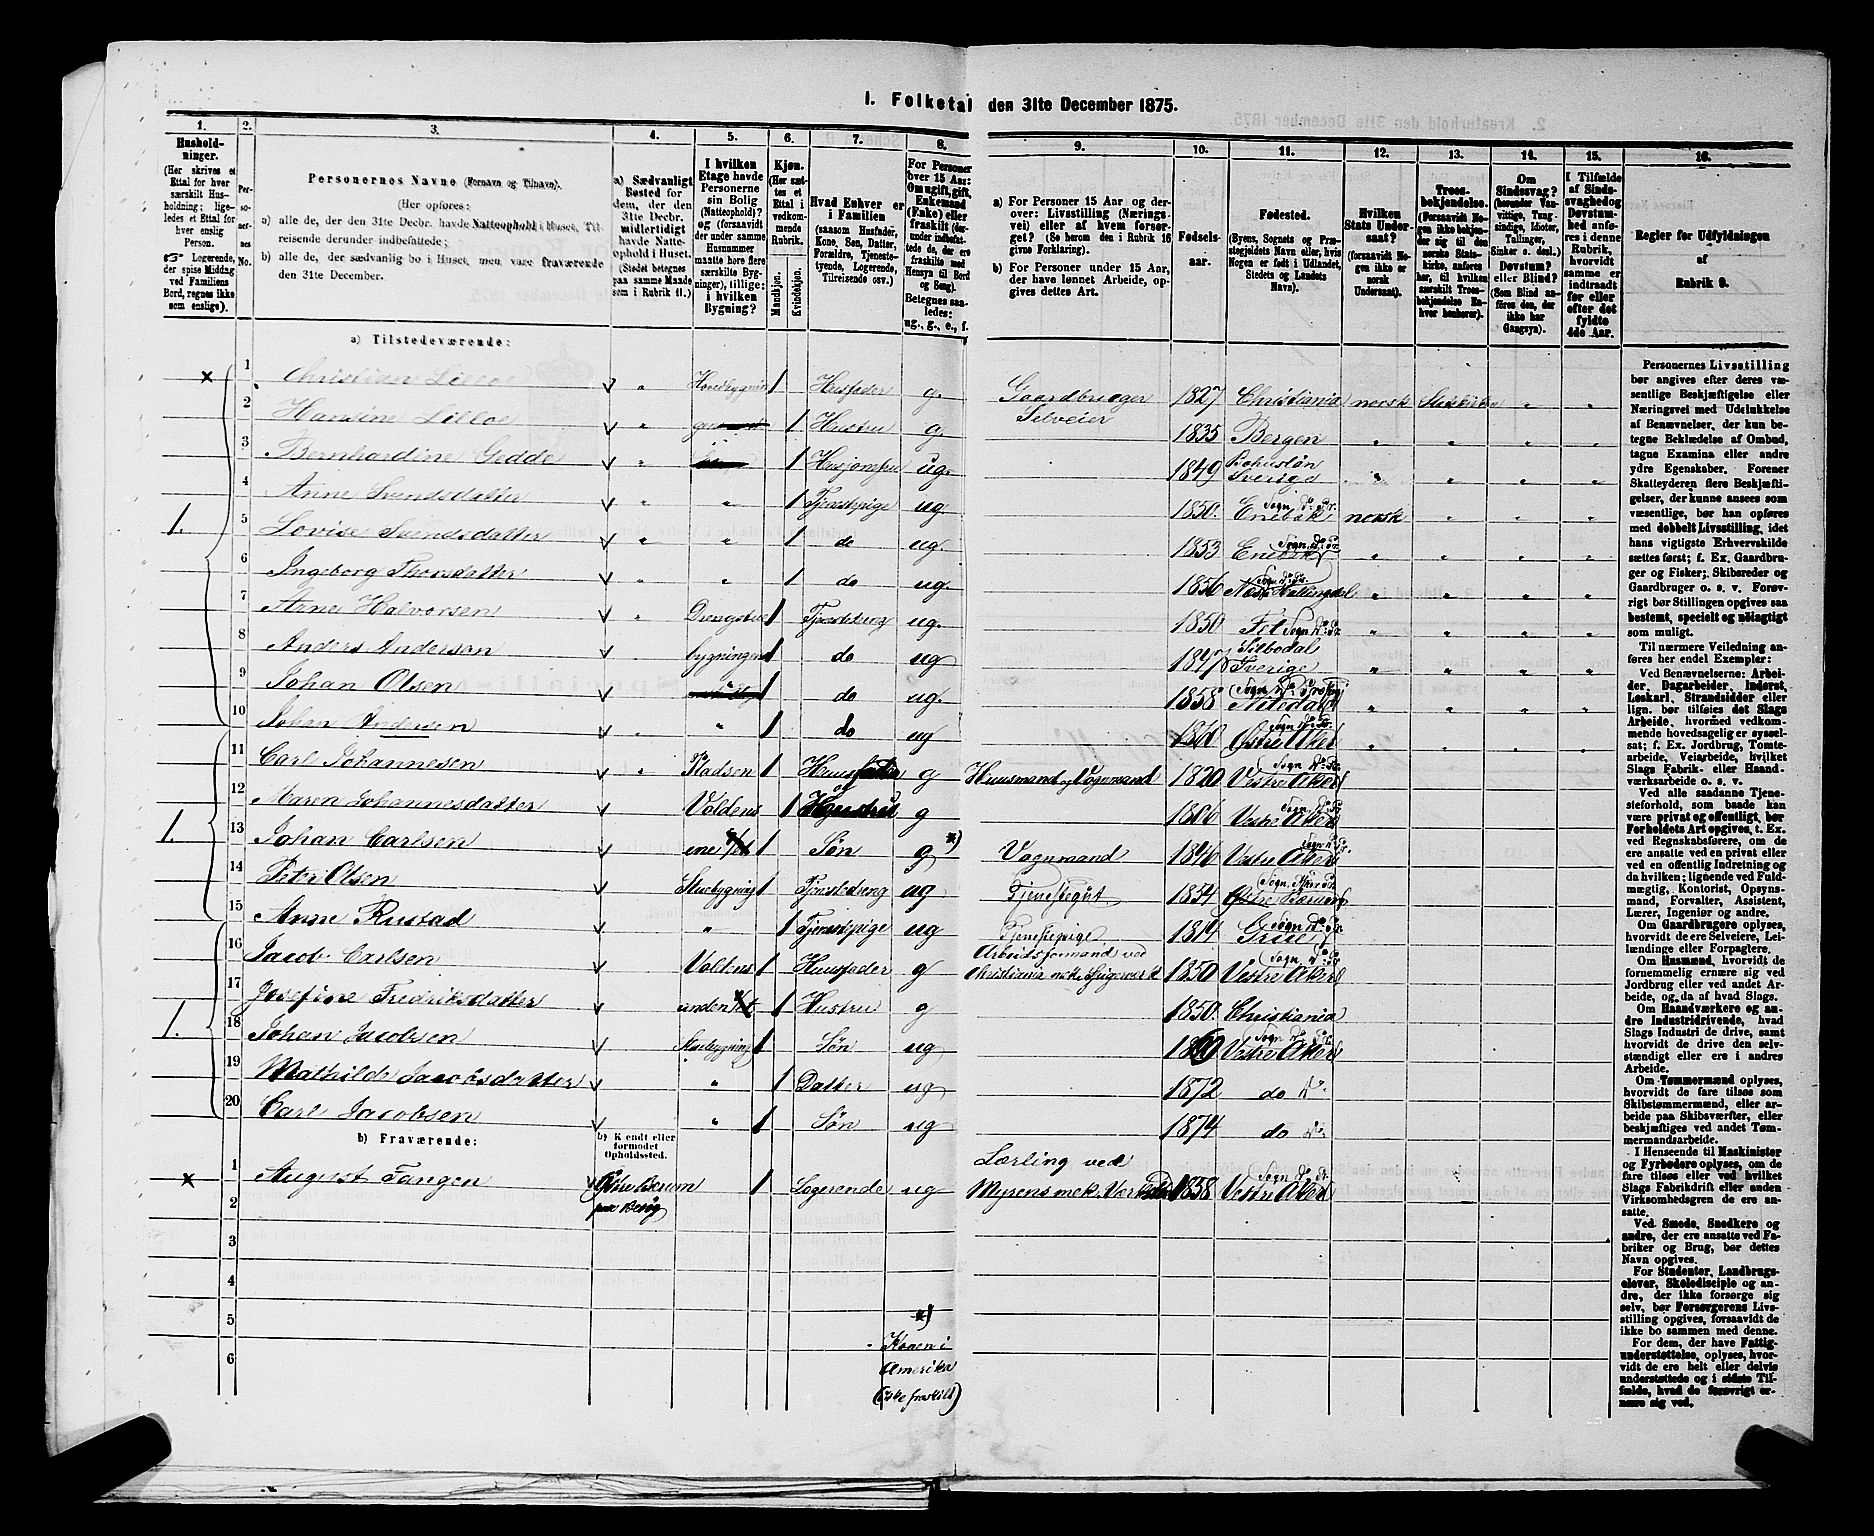 1. Folketal den 31te December 1875.
1. 2. 3. 4. 5. 6. 7. 8. 9. 10. 11. 12. 13. 14. 15. 16.
Hushold-
ninger.
(Her skrives et
Ettal for hver
særskilt Hus-
holdning; lige-
ledes et Ettal for
hver enslig
Person.
☞ Logerende,
der spise Middag
ved Familiens
Bord, regnes ikke
som enslige).
Per-
so-
ner-
nes
No.
Personernes Navne (Fornavn og Tilnavn).
(Her opføres:
a) alle de, der den 31te Decbr. havde Natteophold i Huset, Til-
reisende derunder indbefattede;
b) alle de, der sædvanlig bo i Huset, men vare fraværende
den 31te December.
a) Sædvanligt
Bosted for
dem, der den
31te Decbr.
midlertidigt
havde Natte-
ophold i Huset.
(Stedet betegnes
paa samme Maade
som i Rubrik 11.)
I hvilken
Etage havde
Personerne
sin Bolig
(Natteophold)?
og (forsaavidt
der under samme
Husnummer
maatte høre flere
særskilte Byg-
ninger), tillige:
i hvilken
Bygning?
Kjøn.
(Her sæt-
tes et
Ettal i
vedkom-
mende
Rubrik.
Mandkjøn.
Kvindekjøn.
Hvad Enhver er
i Familien
(saasom Husfader,
Kone, Søn, Datter,
Forældre, Tjeneste-
tyende, Logerende,
Tilreisende osv.)
For Personer
over 15 Aar:
Om ugift, gift,
Enkemand
(Enke) eller
fraskilt (der-
under indbefat-
tede de, der ere
fraskilte med
Hensyn til Bord
og Seng).
Betegnes saa-
ledes:
ug., g., e., f.
a) For Personer 15 Aar og der-
over: Livsstilling (Nærings-
vei) eller af hvem forsør-
get? (Se herom den i Rubrik 16
givne Forklaring.)
b) For Personer under 15 Aar,
der have lønnet Arbeide, op-
gives dettes Art.
Fødsels-
aar.
Fødested.
(Byens, Sognets og Præ-
stegjeldets Navn, eller, hvis
Nogen er født i Udlandet,
Stedets og Landets
Navn).
I hvilken
Stats Under-
saat?
(forsaavidt No-
gen ikke er
norsk
Undersaat).
Troes-
bekjendelse.
(Forsaavidt No-
gen ikke bekjen-
der sig til den
norske Stats-
kirke, anføres
her, til hvilken
særskilt Troes-
bekjendelse En-
hver henhører).
Om
Sindssvag?
(herunder Van-
vittige, Tung-
sindige, Idioter,
Tullinger,
Sinker o. desl.).
Døvstum?
eller Blind?
(Som Blind an-
føres den, der
ikke har
Gangsyn).
I Tilfælde
af Sinds-
svaghed og
Døvstum-
hed anfø-
res i denne
Rubrik,
hvorvidt
samme er
indtraadt
før eller
efter det
fyldte
4de Aar.
Regler for Udfyldningen
af
Rubrik 9.
a) Tilstedeværende:
x 1 Christian Lilloe v " Hovedbygnin 1 Husfader g. Gaardbruger Selveier 1827 Christiania norsk Statskirken " "
2 Hansine Lilloe v " gen 1 Hustru g. 1835 Bergen " " " "
3 Bernhardine Gedde v " 1 Husjomfru ug. 1849 Bohuslän Sverige " " " "
4 Anne Svendsdatter v " " 1 Tjenestepige ug. 1850. Enebak Sogn do Pr. norsk " " "
1. 5 Lovise Svendsdatter v " " 1 do ug. 1853 Enebak Sogn do Pr. " " " "
6 Ingeborg Thorsdatter v " " 1 do ug. 1856 Næs Hallingdal " " " "
7 Arne Halvorsen v " Drengstue 1 Tjenestedreng ug. 1850 Fet Sogn do Pr. " " " "
8 Anders Anderson v bygningen 1 do ug 1847 Silbodal Sverige " " " "
9 Johan Olsen v " 1 do ug. 1858 Nitedal " " " "
10 Johan Andersen v " " 1 do ug 1860 Østre Aker Sogn do Pr. " " " "
11 Carl Johannesen v " Pladsen 1 Huusfader g Huusmand og Vognmand 1820 Vestre Aker Sogn do Pr.
12 Maren Johannesdatter v Voldens 1 Hustru g 1806 Vestre Aker Sogn do Pr.
1. 13 Johan Carlsen v ene 1 Søn g *) Vognmand 1846 Vestre Aker Sogn do Pr.
14 Peter Olsen v Stuebygning 1 Tjenestedreng ug Tjenestegut 1854 Sogn Aker Pr.
15 Anne Rustad v " 1 Tjenestepige ug Tjenestepige 1814 Grue Sogn do Pr.
16 Jacob Carlsen v Voldens 1 Huusfader g Arbeidsformand ved Christiania mek. 1850 Vestre Aker Sogn do Pr.
17 Josefine Fredriksdatter v anden 1 Hustru g 1850. Christiania
1. 18 Johan Jacobsen v Stuebygning 1 Søn ug 1860 Vestre Aker Sogn do Pr.
19 Mathilde Jacobsdatter v " 1 Datter ug 1872 do do
20 Carl Jacobsen v " 1 Søn ug 1874 do do
b) Fraværende:
b) Kjendt eller
formodet
Opholdssted.
x 1 August Tangen v paa Besøg 1 Logerende ug Lærling ved Myrens mek. Værksted 1858 Vestre Aker Sogn do Pr.
2
3
4
5
6
*)
Konen i
Amerika
(ikke fraskilt)
Personernes Livsstilling
bør angives efter deres væ-
sentlige Beskjæftigelse eller
Næringsvei med Udelukkelse
af Benævnelser, der kun be-
tegne Beklædelse af Ombud,
tagne Examina eller andre
ydre Egenskaber. Forener
Skatteyderen flere Beskjæfti-
gelser, der kunne ansees som
væsentlige, bør han opføres
med dobbelt Livsstilling, idet
hans vigtigste Erhvervskilde
sættes først; f. Ex. Gaardbru-
ger og Fisker; Skibsreder og
Gaardbruger o. s. v. Forøv-
rigt bør Stillingen opgives saa
bestemt, specielt og nøiagtigt
som muligt.
Til nærmere Veiledning an-
føres her endel Exempler:
Ved Benævnelserne: Arbei-
der, Dagarbeider, Inderst,
Løskarl, Strandsidder eller
lign. bør tilføies det Slags
Arbeide, hvormed vedkom-
mende hovedsagelig er syssel-
sat; f. Ex. Jordbrug, Tomte-
arbeide, Veiarbeide, hvilket
Slags Fabrik- eller Haand-
værksarbeide o. s. v.
Ved alle saadanne Tjene-
steforhold, som baade kan
være privat og offentligt, bør
Forholdets Art opgives, t. Ex.
ved Regnskabsførere, om de
ere ansatte ved en privat eller
ved en offentlig Indretning og
da hvilken; lignende ved Fuld-
mægtig, Kontorist, Opsyns-
mand, Forvalter, Assistent,
Lærer, Ingeniør og andre.
Om Gaardbrugere oplyses,
hvorvidt de ere Selveiere, Lei-
lændinge eller Forpagtere.
Om Husmænd, hvorvidt de
fornemmelig ernære sig ved
Jordbrug eller ved andet Ar-
beide, og da af hvad Slags.
Om Haandværkere og an-
dre Industridrivende, hvad
Slags Industri de drive, samt
hvorvidt de drive den selv-
stændigt eller ere i andres
Arbeide.
Om Tømmermænd oplyses,
hvorvidt de fare tilsøs som
Skibstømmermænd, eller ar-
beide paa Skibsværfter, eller
beskjæftiges ved andet Tøm-
mermandsarbeide.
I Henseende til Maskinister
og Fyrbødere oplyses, om de
fare tilsøs eller ved hvilket
Slags Fabrikdrift eller anden
Virksomhedsgren de ere an-
satte.
Ved Smede, Snedkere og
andre, der ere ansatte ved Fa-
briker og Brug, bør dettes
Navn opgives.
For Studenter, Landbrugs-
elever, Skoledisciple og an-
dre, der ikke forsørge sig
selv, bør Forsørgerens Livs-
stilling opgives, forsaavidt de
ikke bo sammen med denne.
For dem, der have Fattig-
understøttelse, oplyses, hvor-
vidt de ere helt eller delvis
understøttede og i sidste Til-
fælde, hvad de forøvrigt er-
nære sig ved.